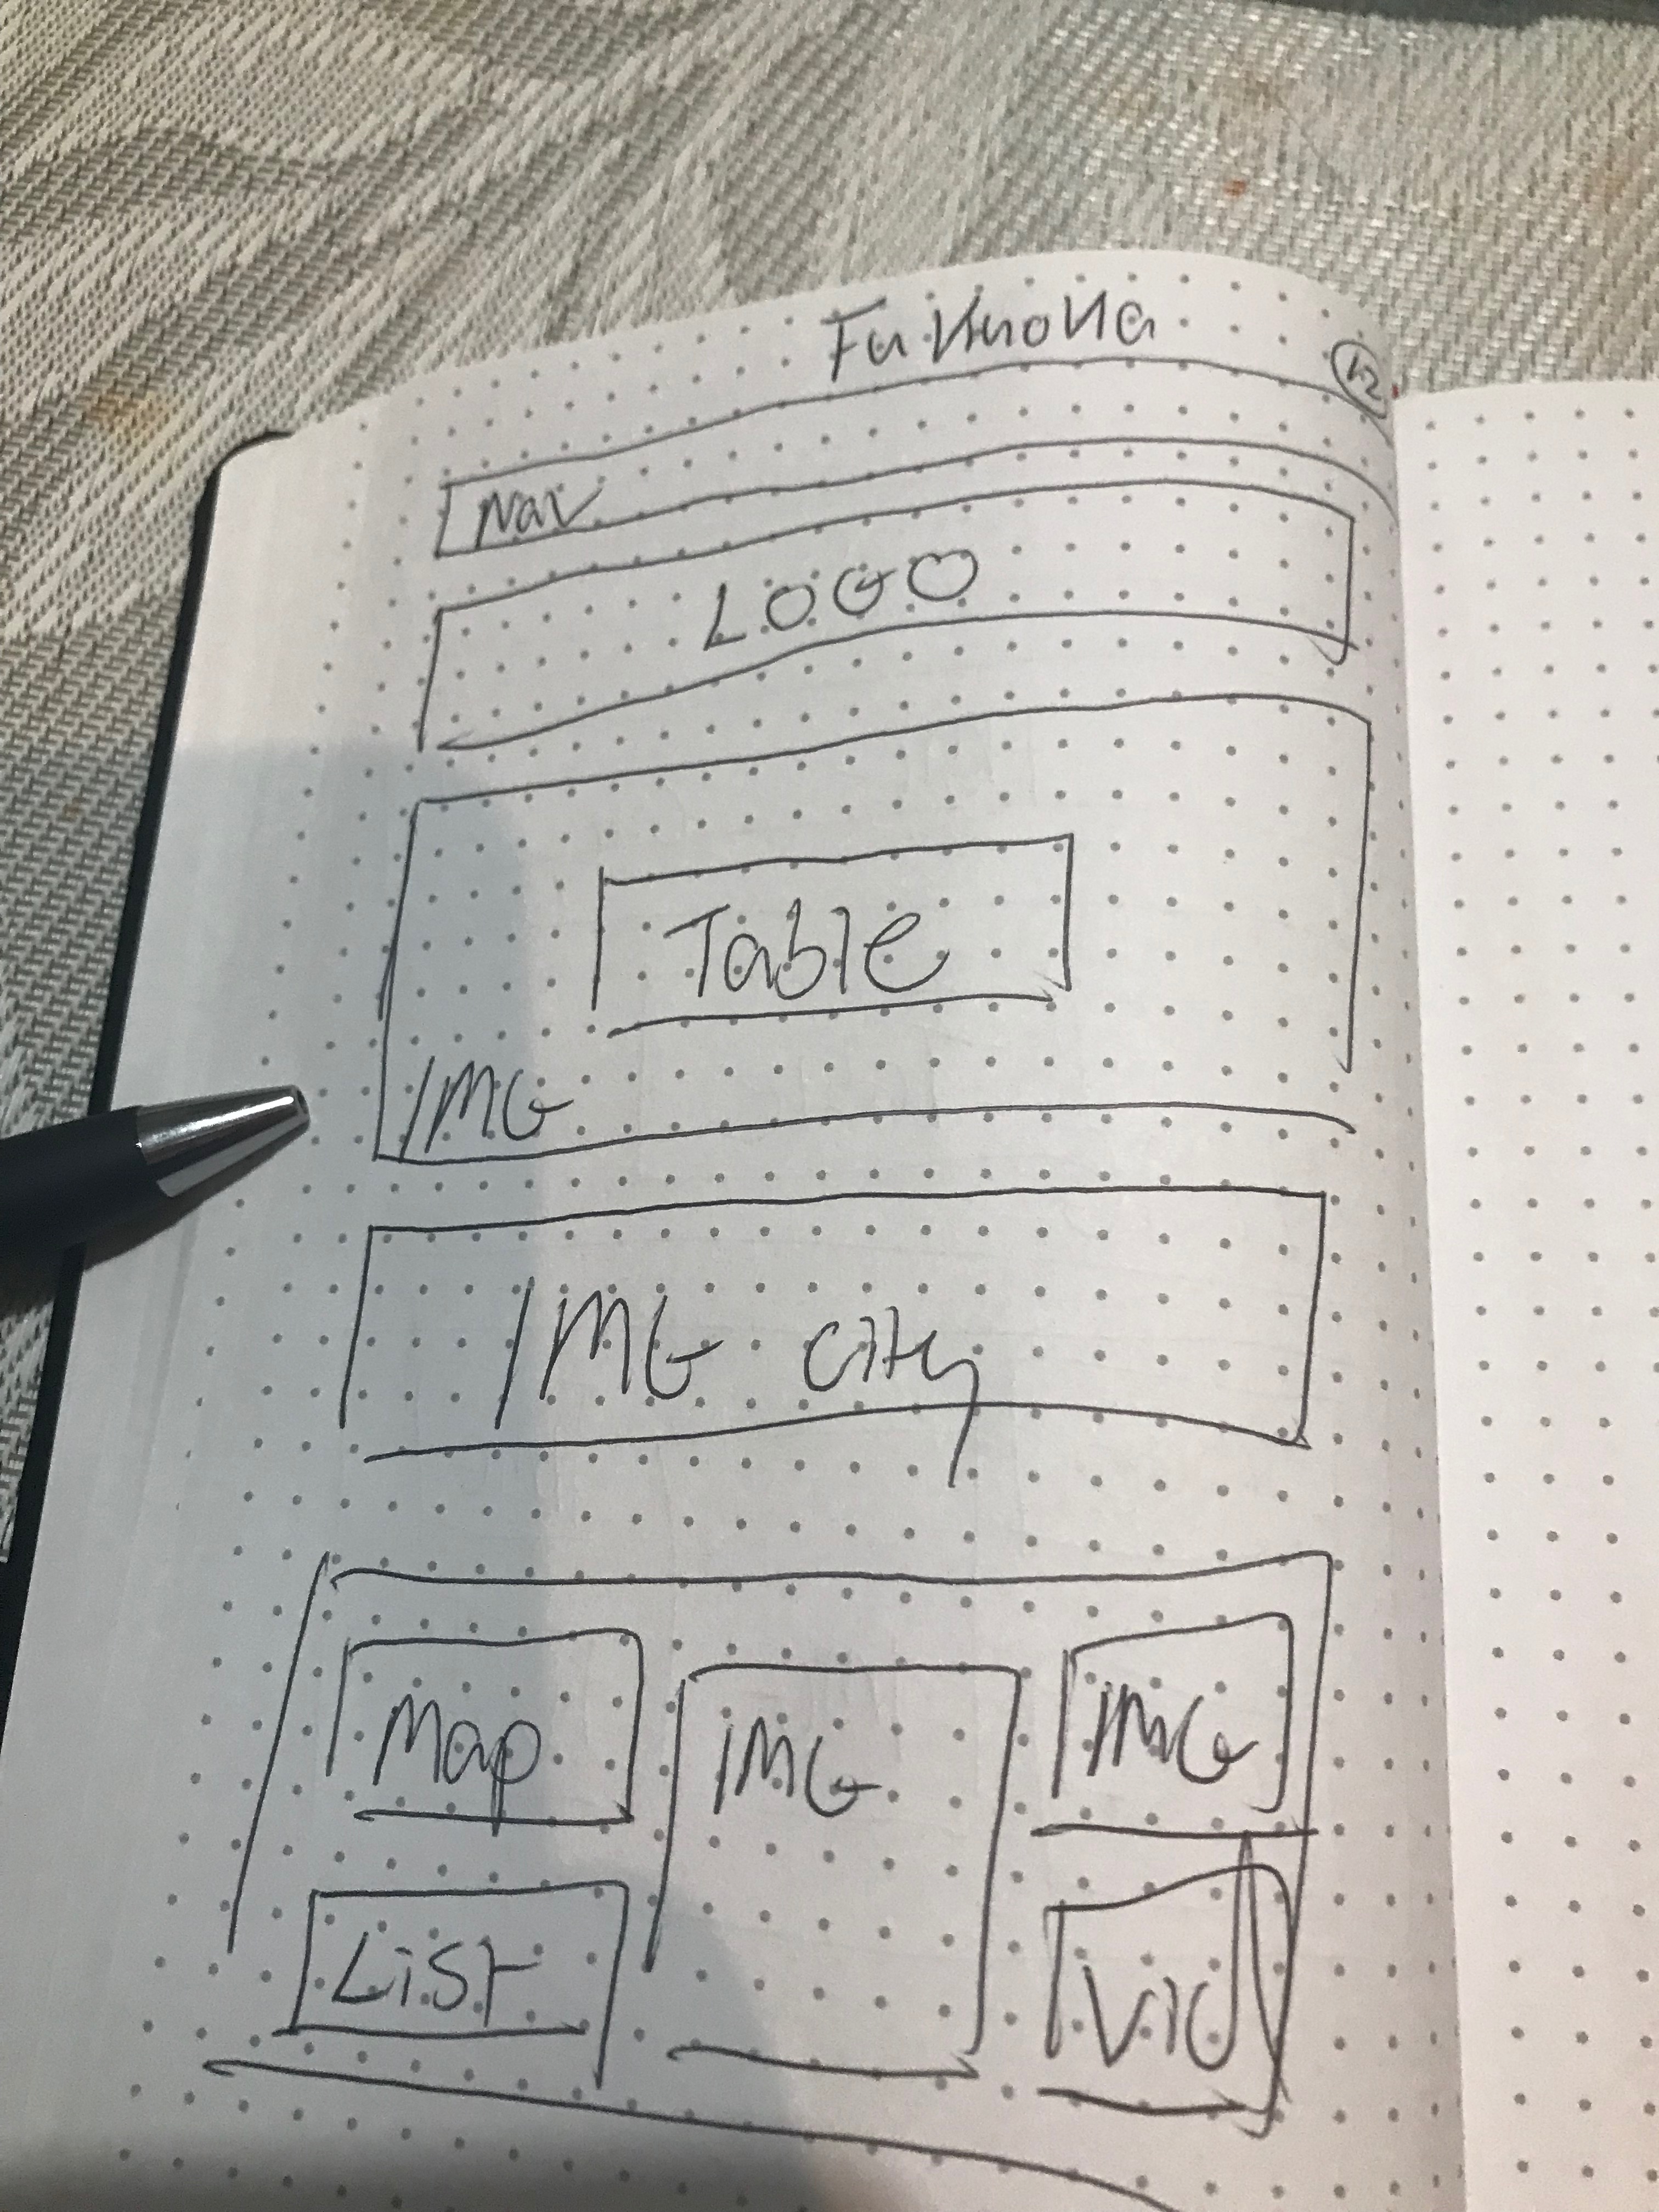 Fukuoka
Nav
LOGO
Table
IMG
IMG City
Map
IMG
IMG
List
Vid